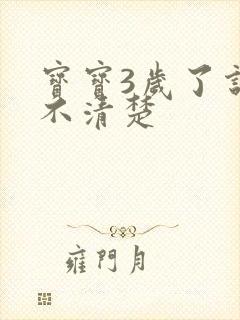 寶寶3歲了
不清楚
雍門月